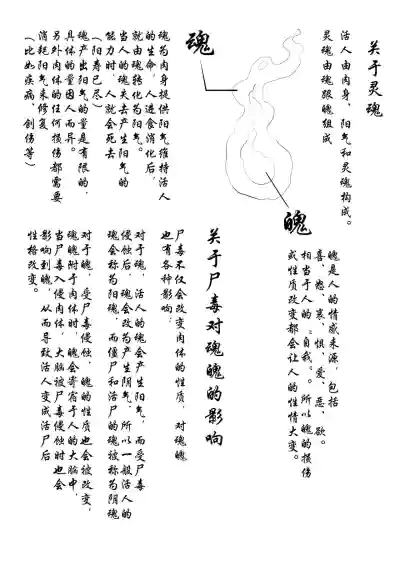 关于灵魂
活人由肉身，阳气和灵魂构成。
灵魂由魂跟魄组成
魂
魂为肉身提供阳气维持活人
的生命，人进食消化后，
就由魂转化为阳气。
当人的魂失去产生阳气的
能力时，人就会死去
（阳寿已尽）
魂产出阳气的量是有限的，
具体的量因人而异。
另外肉体的任何损伤都需要
消耗阳气来修复
（比如疾病，创伤等）
魄
魄是人的情感来源，包括
喜，怒，哀，惧，爱，恶，欲。
相当于人的“自我”。所以魄的损伤
或性质改变都会让人的性情大变。
关于尸毒对魂魄的影响
尸毒不仅会改变肉体的性质，对魂魄
也有各种影响：
对于魂，活人的魂会产生阳气，而受尸毒
侵蚀后，魂会改为产生阴气，所以一般活人的
魂会称为阳魂，而僵尸和活尸的魂被称为阴魂
对于魄，受尸毒侵蚀，魄的性质也会被改变，
魂魄附于肉体时，魄会寄宿于人的大脑中，
当尸毒入侵肉体，大脑被尸毒侵蚀时也会
影响到魄，从而导致活人变成活尸后
性格改变。